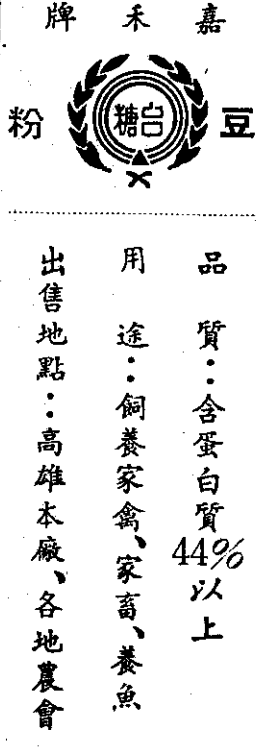 嘉禾牌
豆粉
台糖
品質：含蛋白質44%以上
用途：飼養家禽、家畜、養魚
出售地點：高雄本廠、各地農會